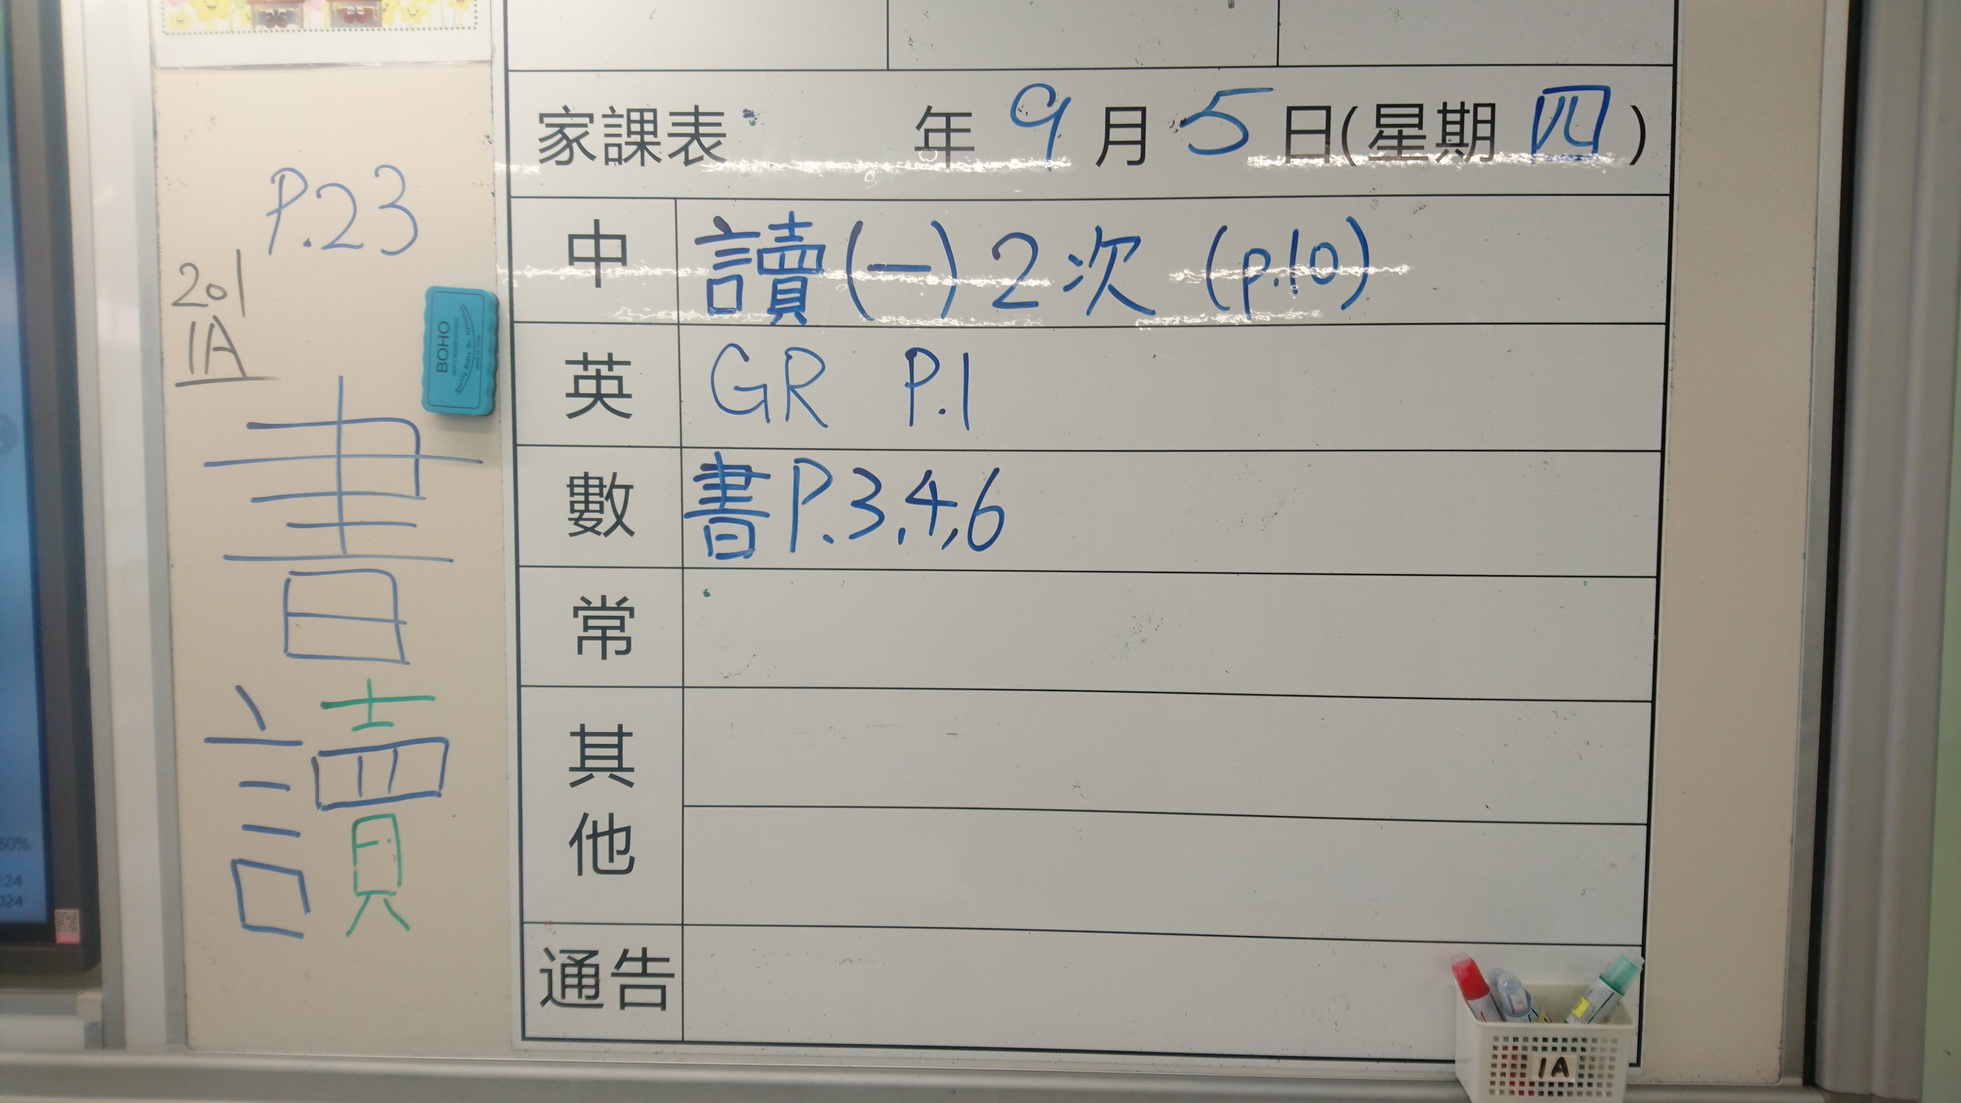 家課表 年 9 月 5 日(星期 四)
中 讀(一)2次 (p.10)
英 GR P.1
數 書P.3,4,6
常
其他
通告
P.23
201
1A
書
讀
BOHO
1A
60%
:24
024